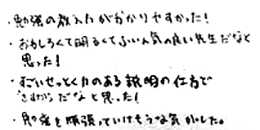 ・勉強の教え方が分かりやすかった！
・おもしろくて明るくてふいん気の良い先生だなと
思った！
・すごいせっとく力のある説明の仕方で
さすがだなと思った！
・勉強を頑張っていけそうな気がした。